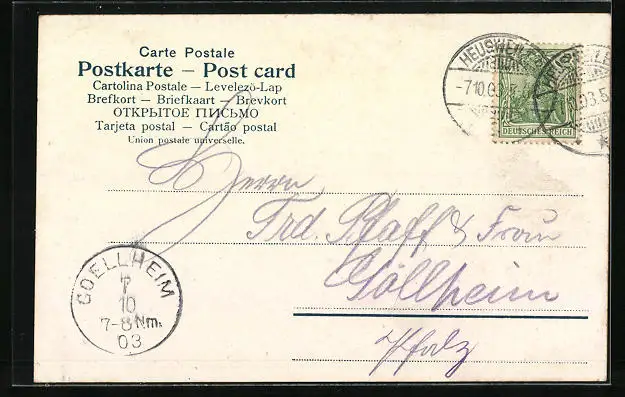 Carte Postale
Postkarte – Post card
Cartolina Postale – Levelezö-Lap
Brefkort – Briefkaart – Brevkort
ОТКРЫТОЕ ПИСЬМО
Tarjeta postal – Cartão postal
Union postale universelle.
HEUSWEILER
-7.10.03.5
DEUTSCHES REICH
Herrn
Frd. Pfaff & Frau
Göllheim
Pfalz
GOELLHEIM
7
10
7-8 Nm.
03